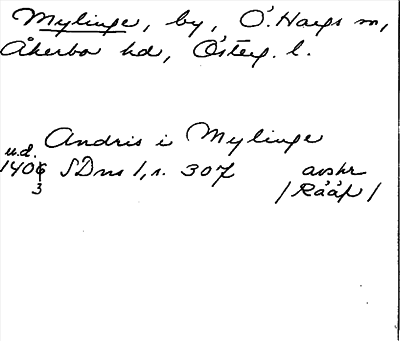 Mylinge, by, Ö. Hargs sn,
Åkerbo hd, Österg. l.
Andris i Mylinge
u.d.
1406 SDns 1, s. 307 avskr
3 /RääP/